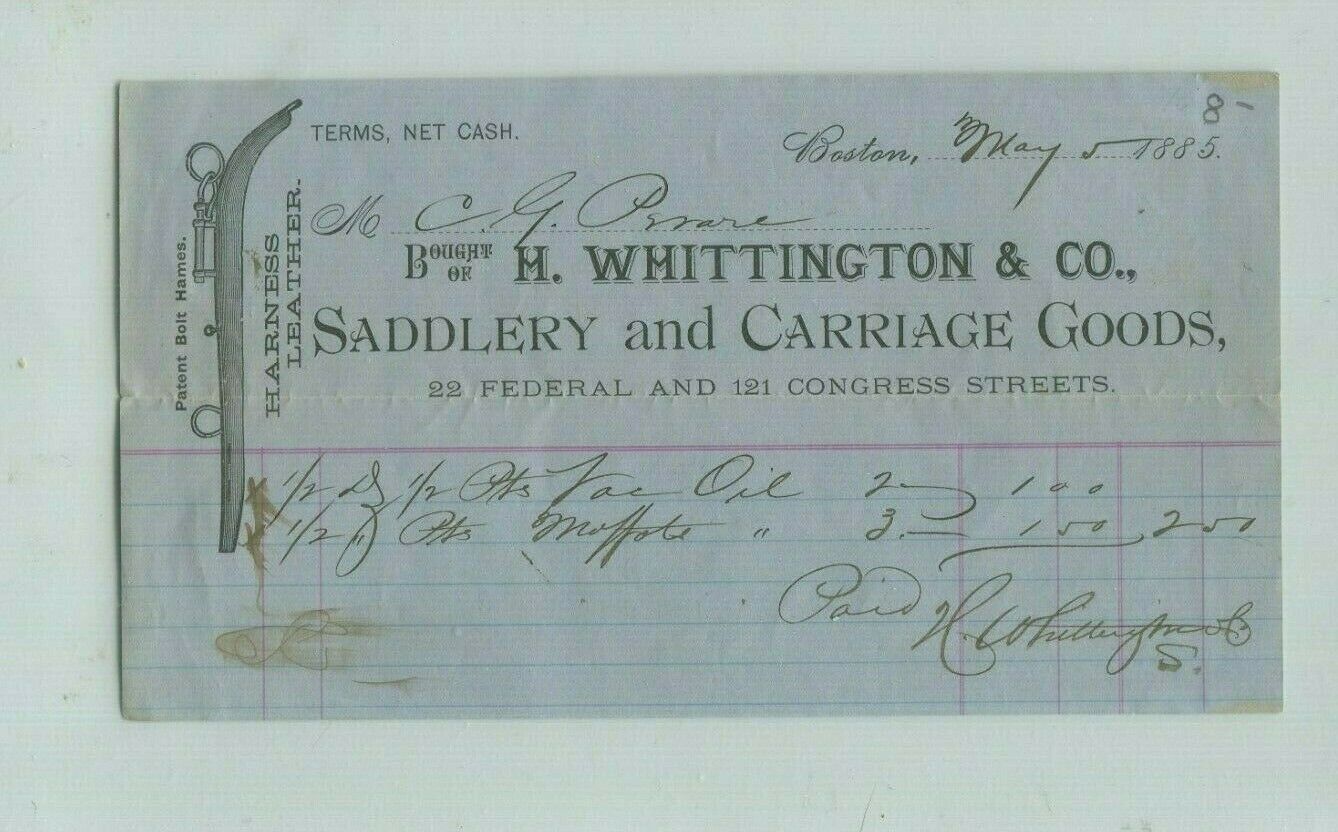 8 1
TERMS, NET CASH.
Boston, May 5 1885.
M C. G.
BOUGHT OF H. WHITTINGTON & CO.,
SADDLERY and CARRIAGE GOODS,
22 FEDERAL AND 121 CONGRESS STREETS.
Patent Bolt Hames.
HARNESS
LEATHER.
1/2 Dz 1/2 Pts Vac Oil 2— 1 00
1/2 " Pts " 3.— 1 50 2 50
Paid
H. Whittington & Co
S.